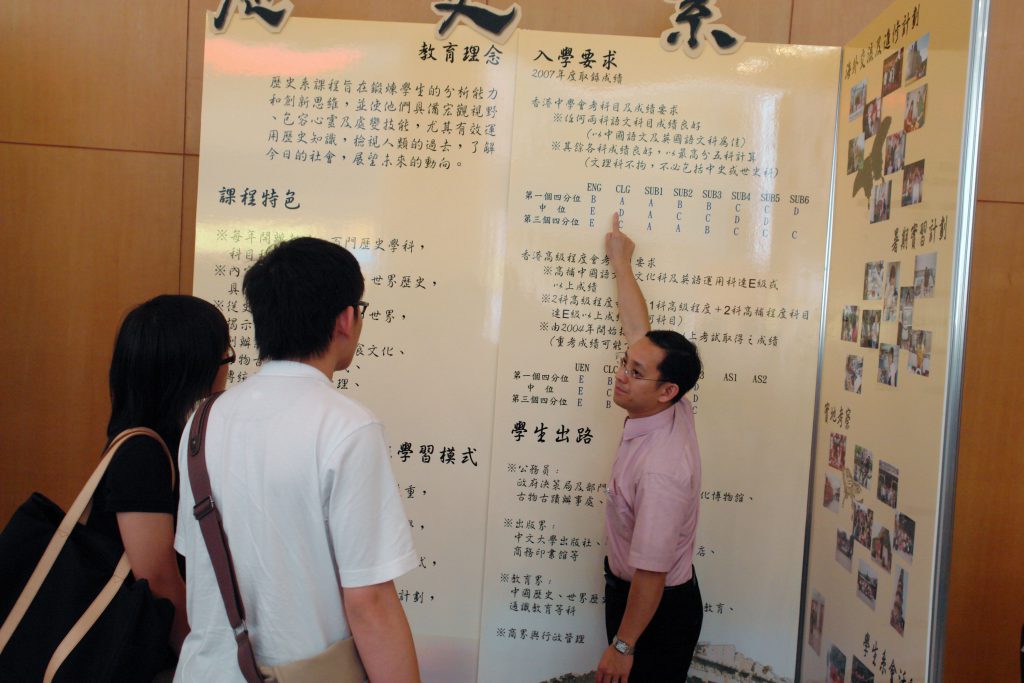 歷史系
教育理念
歷史系課程旨在鍛煉學生的分析能力
和創新思維，並使他們具備宏觀視野
、包容心靈及處變技能，尤其有效運
用歷史知識，檢視人類的過去，了解
今日的社會，展望未來的動向。
課程特色
※每年開
百門歷史學科，
科目
※內
世界歷史，
具
※從
世界，
揭示
文化、
理、
學習模式
重，
式，
計劃，
入學要求
2007年度取錄成績
香港中學會考科目及成績要求
※任何兩科語文科目成績良好
(以中國語文及英國語文科為佳)
※其餘各科成績良好，以最高分五科計算
(文理科不拘，不必包括中史或世史科)
ENG CLG SUB1 SUB2 SUB3 SUB4 SUB5 SUB6
第一個四分位 B A A B B C C D
中 位 E D A C C D D
第三個四分位 E C A A B C C C
香港高級程度會考 要求
※高補中國語文 文化科及英語運用科達E級或
以上成績
※2科高級程度 1科高級程度+2科高補程度科目
達E級以上成 何科目)
※由2004年開始 上考試取得之成績
(重考成績可能
UEN CLC AS1 AS2
第一個四分位 E B
中 位 E C D
第三個四分位 E B C
學生出路
※公務員：
政府決策局及部門 化博物館、
古物古蹟辦事處、
※出版界：
中文大學出版社、 店、
商務印書館等
※教育界：
中國歷史、世界歷史 教育、
通識教育等科
※商界與行政管理
海外交流及進修計劃
暑期實習計劃
實地考察
學生系會活